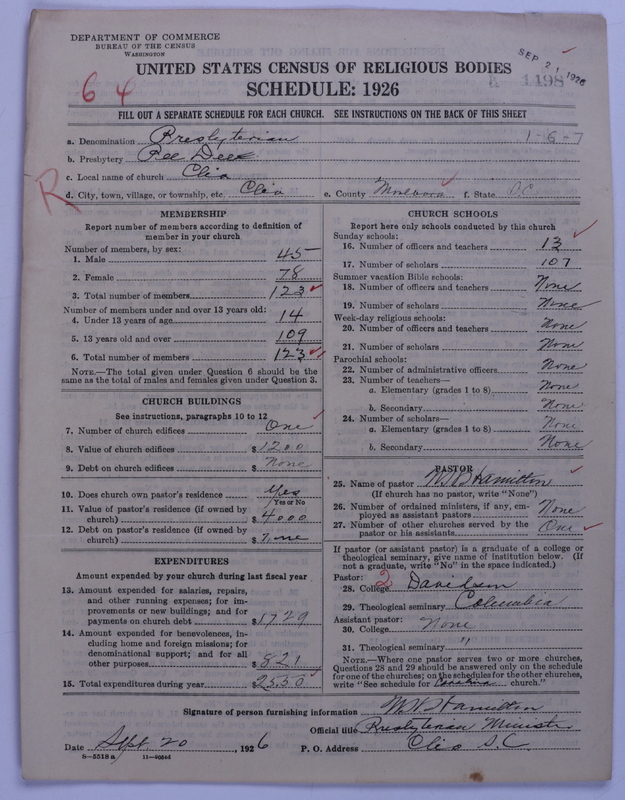 DEPARTMENT OF COMMERCE
BUREAU OF THE CENSUS
WASHINGTON
SEP 21 1926
1198
UNITED STATES CENSUS OF RELIGIOUS BODIES
SCHEDULE: 1926
64
FILL OUT A SEPARATE SCHEDULE FOR EACH CHURCH. SEE INSTRUCTIONS ON THE BACK OF THIS SHEET
a. Denomination Presbyterian 1-6-7
b. Presbytery Pee Dee
c. Local name of church Clio
R
d. City, town, village, or township, etc. Clio e. County Marlboro f. State S.C.
MEMBERSHIP
Report number of members according to definition of
member in your church
Number of members, by sex:
1. Male 45
2. Female 78
3. Total number of members 123
Number of members under and over 13 years old:
4. Under 13 years of age 14
5. 13 years old and over 109
6. Total number of members 123
NOTE.—The total given under Question 6 should be the
same as the total of males and females given under Question 3.
CHURCH BUILDINGS
See instructions, paragraphs 10 to 12
7. Number of church edifices One
8. Value of church edifices $1200
9. Debt on church edifices $ None
10. Does church own pastor's residence Yes
Yes or No
11. Value of pastor's residence (if owned by
church) $4000
12. Debt on pastor's residence (if owned by
church) $ None
EXPENDITURES
Amount expended by your church during last fiscal year
13. Amount expended for salaries, repairs,
and other running expenses; for im-
provements or new buildings; and for
payments on church debt $1729
14. Amount expended for benevolences, in-
cluding home and foreign missions; for
denominational support; and for all
other purposes $821
15. Total expenditures during year $2550
CHURCH SCHOOLS
Report here only schools conducted by this church
Sunday schools:
16. Number of officers and teachers 13
17. Number of scholars 107
Summer vacation Bible schools:
18. Number of officers and teachers None
19. Number of scholars None
Week-day religious schools:
20. Number of officers and teachers None
21. Number of scholars None
Parochial schools:
22. Number of administrative officers None
23. Number of teachers—
a. Elementary (grades 1 to 8) None
b. Secondary None
24. Number of scholars—
a. Elementary (grades 1 to 8) None
b. Secondary None
PASTOR
25. Name of pastor Hamilton
(If church has no pastor, write "None")
26. Number of ordained ministers, if any, em-
ployed as assistant pastors None
27. Number of other churches served by the
pastor or his assistants One
If pastor (or assistant pastor) is a graduate of a college or
theological seminary, give name of institution below. (If
not a graduate, write "No" in the space indicated.)
Pastor:
28. College 2 Davidson
29. Theological seminary Columbia
Assistant pastor:
30. College None
31. Theological seminary "
NOTE.—Where one pastor serves two or more churches,
Questions 28 and 29 should be answered only on the schedule
for one of the churches; on the schedules for the other churches,
write "See schedule for church."
Signature of person furnishing information Hamilton
Official title Presbyterian Minister
Date Sept. 20, 1926 P. O. Address Clio S.C.
8-5518a 11-9024d